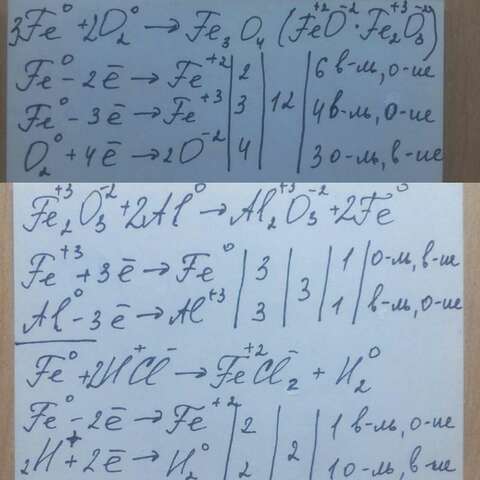 3Fe⁰ + 2O₂⁰ → Fe₃O₄ (Fe⁺²O⁻²·Fe₂⁺³O₃⁻²)
Fe⁰ - 2ē → Fe⁺² | 2 | | 6 в-ль, о-ие
Fe⁰ - 3ē → Fe⁺³ | 3 | 12 | 4 в-ль, о-ие
O₂⁰ + 4ē → 2O⁻² | 4 | | 3 о-ль, в-ие
Fe₂⁺³O₃⁻² + 2Al⁰ → Al₂⁺³O₃⁻² + 2Fe⁰
Fe⁺³ + 3ē → Fe⁰ | 3 | 3 | 1 о-ль, в-ие
Al⁰ - 3ē → Al⁺³ | 3 | | 1 в-ль, о-ие
Fe⁰ + 2H⁺Cl⁻ → Fe⁺²Cl₂⁻ + H₂⁰
Fe⁰ - 2ē → Fe⁺² | 2 | 2 | 1 в-ль, о-ие
2H⁺ + 2ē → H₂⁰ | 2 | | 1 о-ль, в-ие